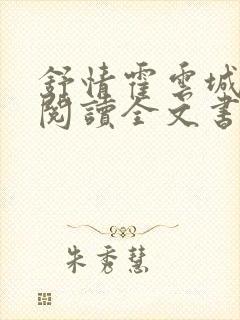 舒情霍雲城
閱讀全文書
朱秀慧